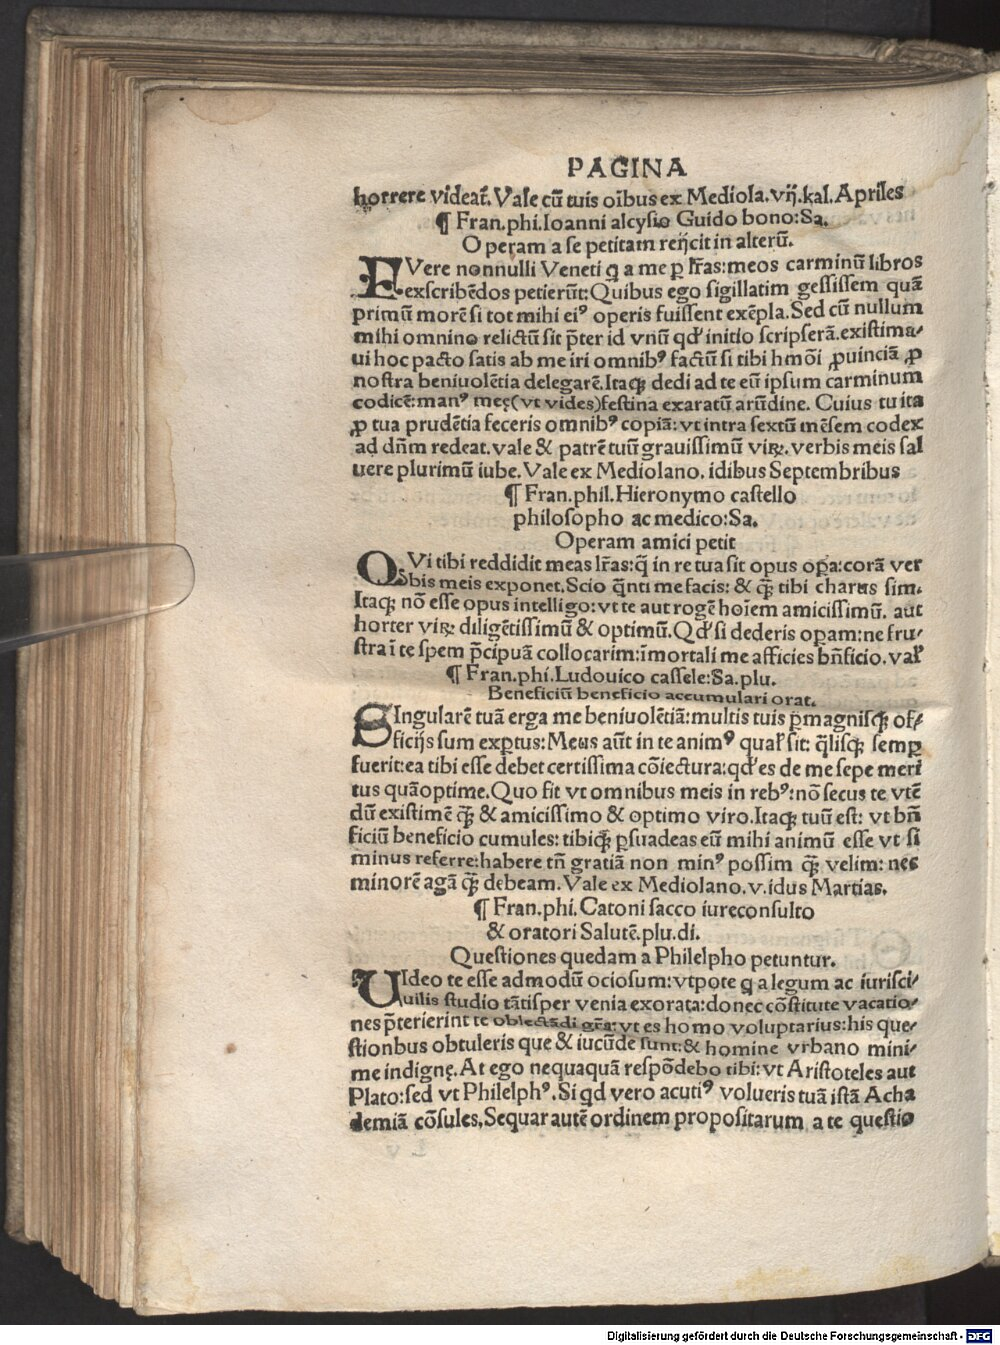 PAGINA
horrere videat᷑. Vale cū tuis oībus ex Mediola. vij. kal. Apriles
¶ Fran. phi. Ioanni alcysio Guido bono: Sa.
Operam a se petitam reijcit in alterū.
FVere nonnulli Veneti q a me p lr̄as: meos carminū libros
exscribēdos petierūt: Quibus ego sigillatim gessissem quā
primū morē si tot mihi eiꝰ operis fuissent exēpla. Sed cū nullum
mihi omnino relictū sit p̄ter id vnū qđ initio scripserā. existima⸗
ui hoc pacto satis ab me iri omnibꝰ factū si tibi hmōi ꝓuinciā ꝓ
nostra beniuolētia delegarē. Itaqꝫ dedi ad te eū ipsum carminum
codicē: manꝰ meę (vt vides) festina exaratū arūdine. Cuius tu ita
ꝓ tua prudētia feceris omnibꝰ copiā: vt intra sextū mēsem codex
ad dn̄m redeat. vale & patrē tuū grauissimū viꝝ. verbis meis sal
uere plurimū iube. Vale ex Mediolano. idibus Septembribus
¶ Fran. phil. Hieronymo castello
philosopho ac medico: Sa.
Operam amici petit
QVi tibi reddidit meas lr̄as: q̄ in re tua sit opus oꝑa: corā ver
bis meis exponet. Scio q̄nti me facis: & qꝫ̄ tibi charus sim.
Itaqꝫ nō esse opus intelligo: vt te aut rogē hoīem amicissimū. aut
horter viꝝ diligētissimū & optimū. Qđ si dederis oꝑam: ne fru⸗
stra ī te spem p̄cipuā collocarim: īmortali me afficies bn̄ficio. vaƚ
¶ Fran. phi. Ludouico cassele: Sa. plu.
Beneficiū beneficio accumulari orat.
SIngularē tuā erga me beniuolētiā: multis tuis ꝑmagnisqꝫ of⸗
ficijs sum exꝑtus: Meus aūt in te animꝰ quaƚ sit: q̄lisqꝫ semꝑ
fuerit: ea tibi esse debet certissima cōiectura: qđ es de me sepe meri
tus quāoptime. Quo fit vt omnibus meis in rebꝰ: nō secus te vtē
dū existimē qꝫ̄ & amicissimo & optimo viro. Itaqꝫ tuū est: vt bn̄
ficiū beneficio cumules: tibiqꝫ ꝑsuadeas eū mihi animū esse vt si
minus referre: habere tn̄ gratiā non minꝰ possim qꝫ̄ velim: nec
minorē agā qꝫ̄ debeam. Vale ex Mediolano. v. idus Martias.
¶ Fran. phi. Catoni sacco iureconsulto
& oratori Salutē. plu. di.
Questiones quedam a Philelpho petuntur.
VIdeo te esse admodū ociosum: vtpote q a legum ac iurisci⸗
uilis studio tātisper venia exorata: donec cōstitute vacatio⸗
nes p̄terierint te oblectādi gr̄a: vt es homo voluptarius: his que⸗
stionbus obtuleris que & iucūde sunt: & homine vrbano mini⸗
me indignę. At ego nequaquā respōdebo tibi: vt Aristoteles aut
Plato: sed vt Philelphꝰ. Si qd vero acutiꝰ volueris tuā istā Acha
demiā cōsules. Sequar autē ordinem propositarum a te questio
Digitalisierung gefördert durch die Deutsche Forschungsgemeinschaft - DFG